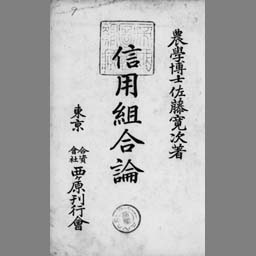 農學博士佐藤寬次著
信用組合論
東京
合資會社 西ヶ原刊行會